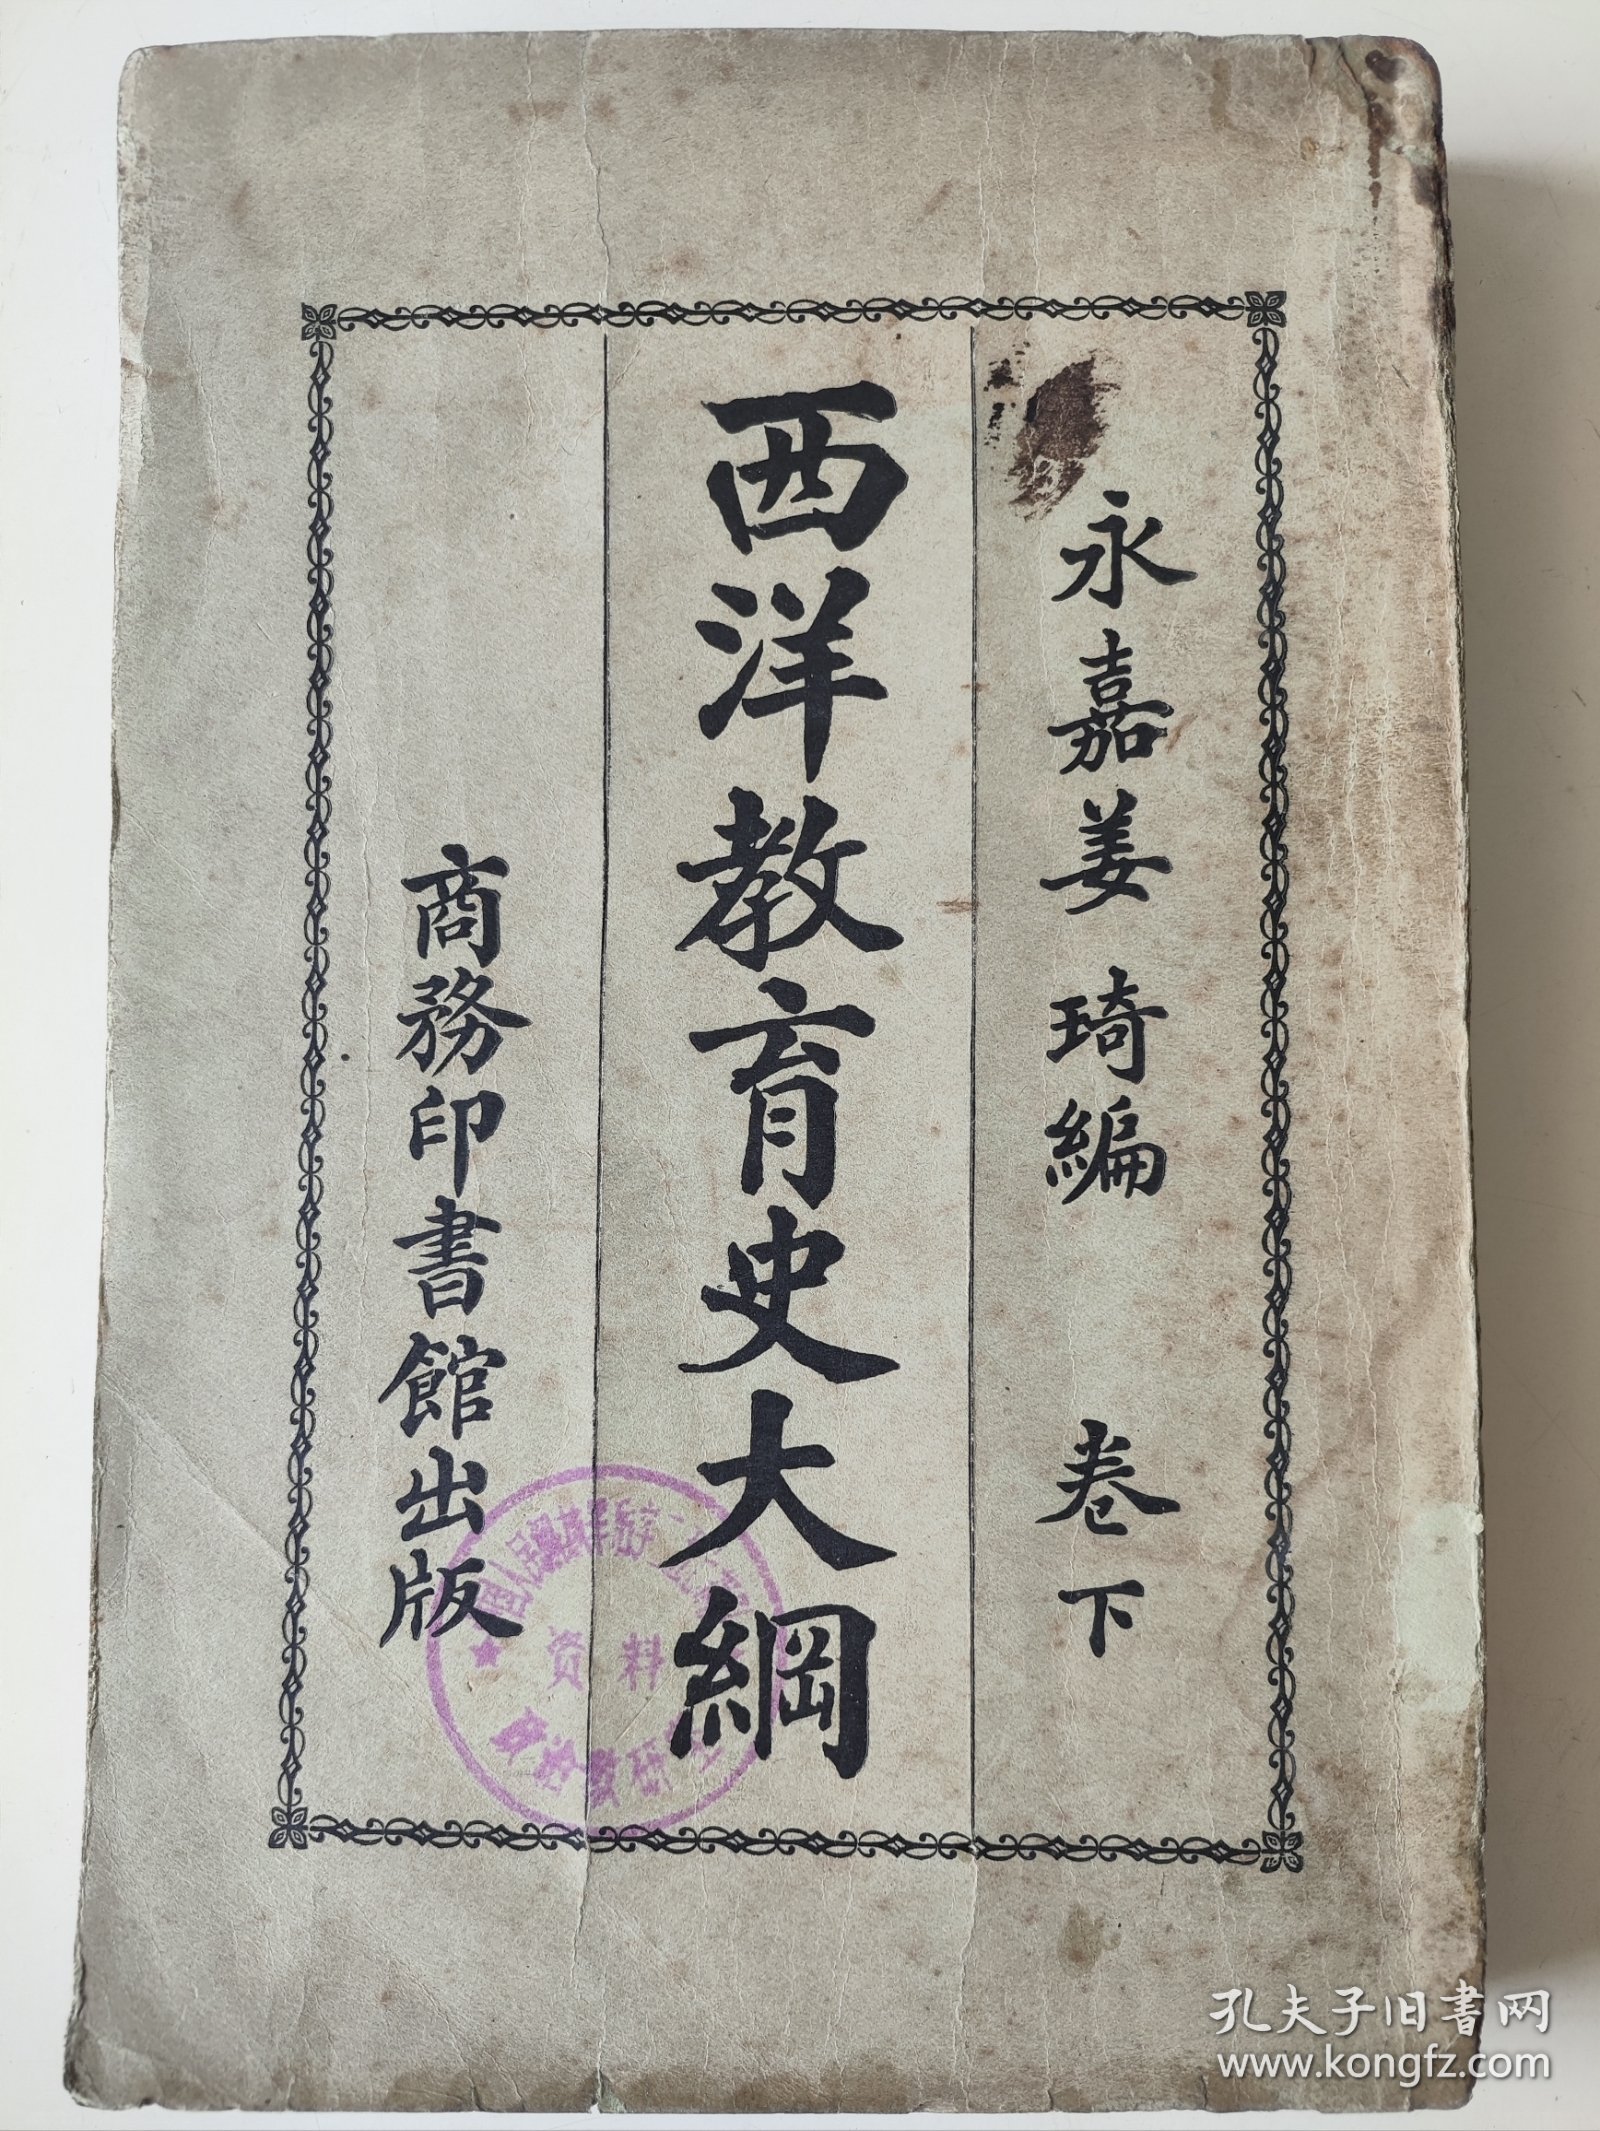 永嘉姜琦編 卷下
西洋教育史大綱
商務印書館出版
资料
孔夫子旧书网
www.kongfz.com